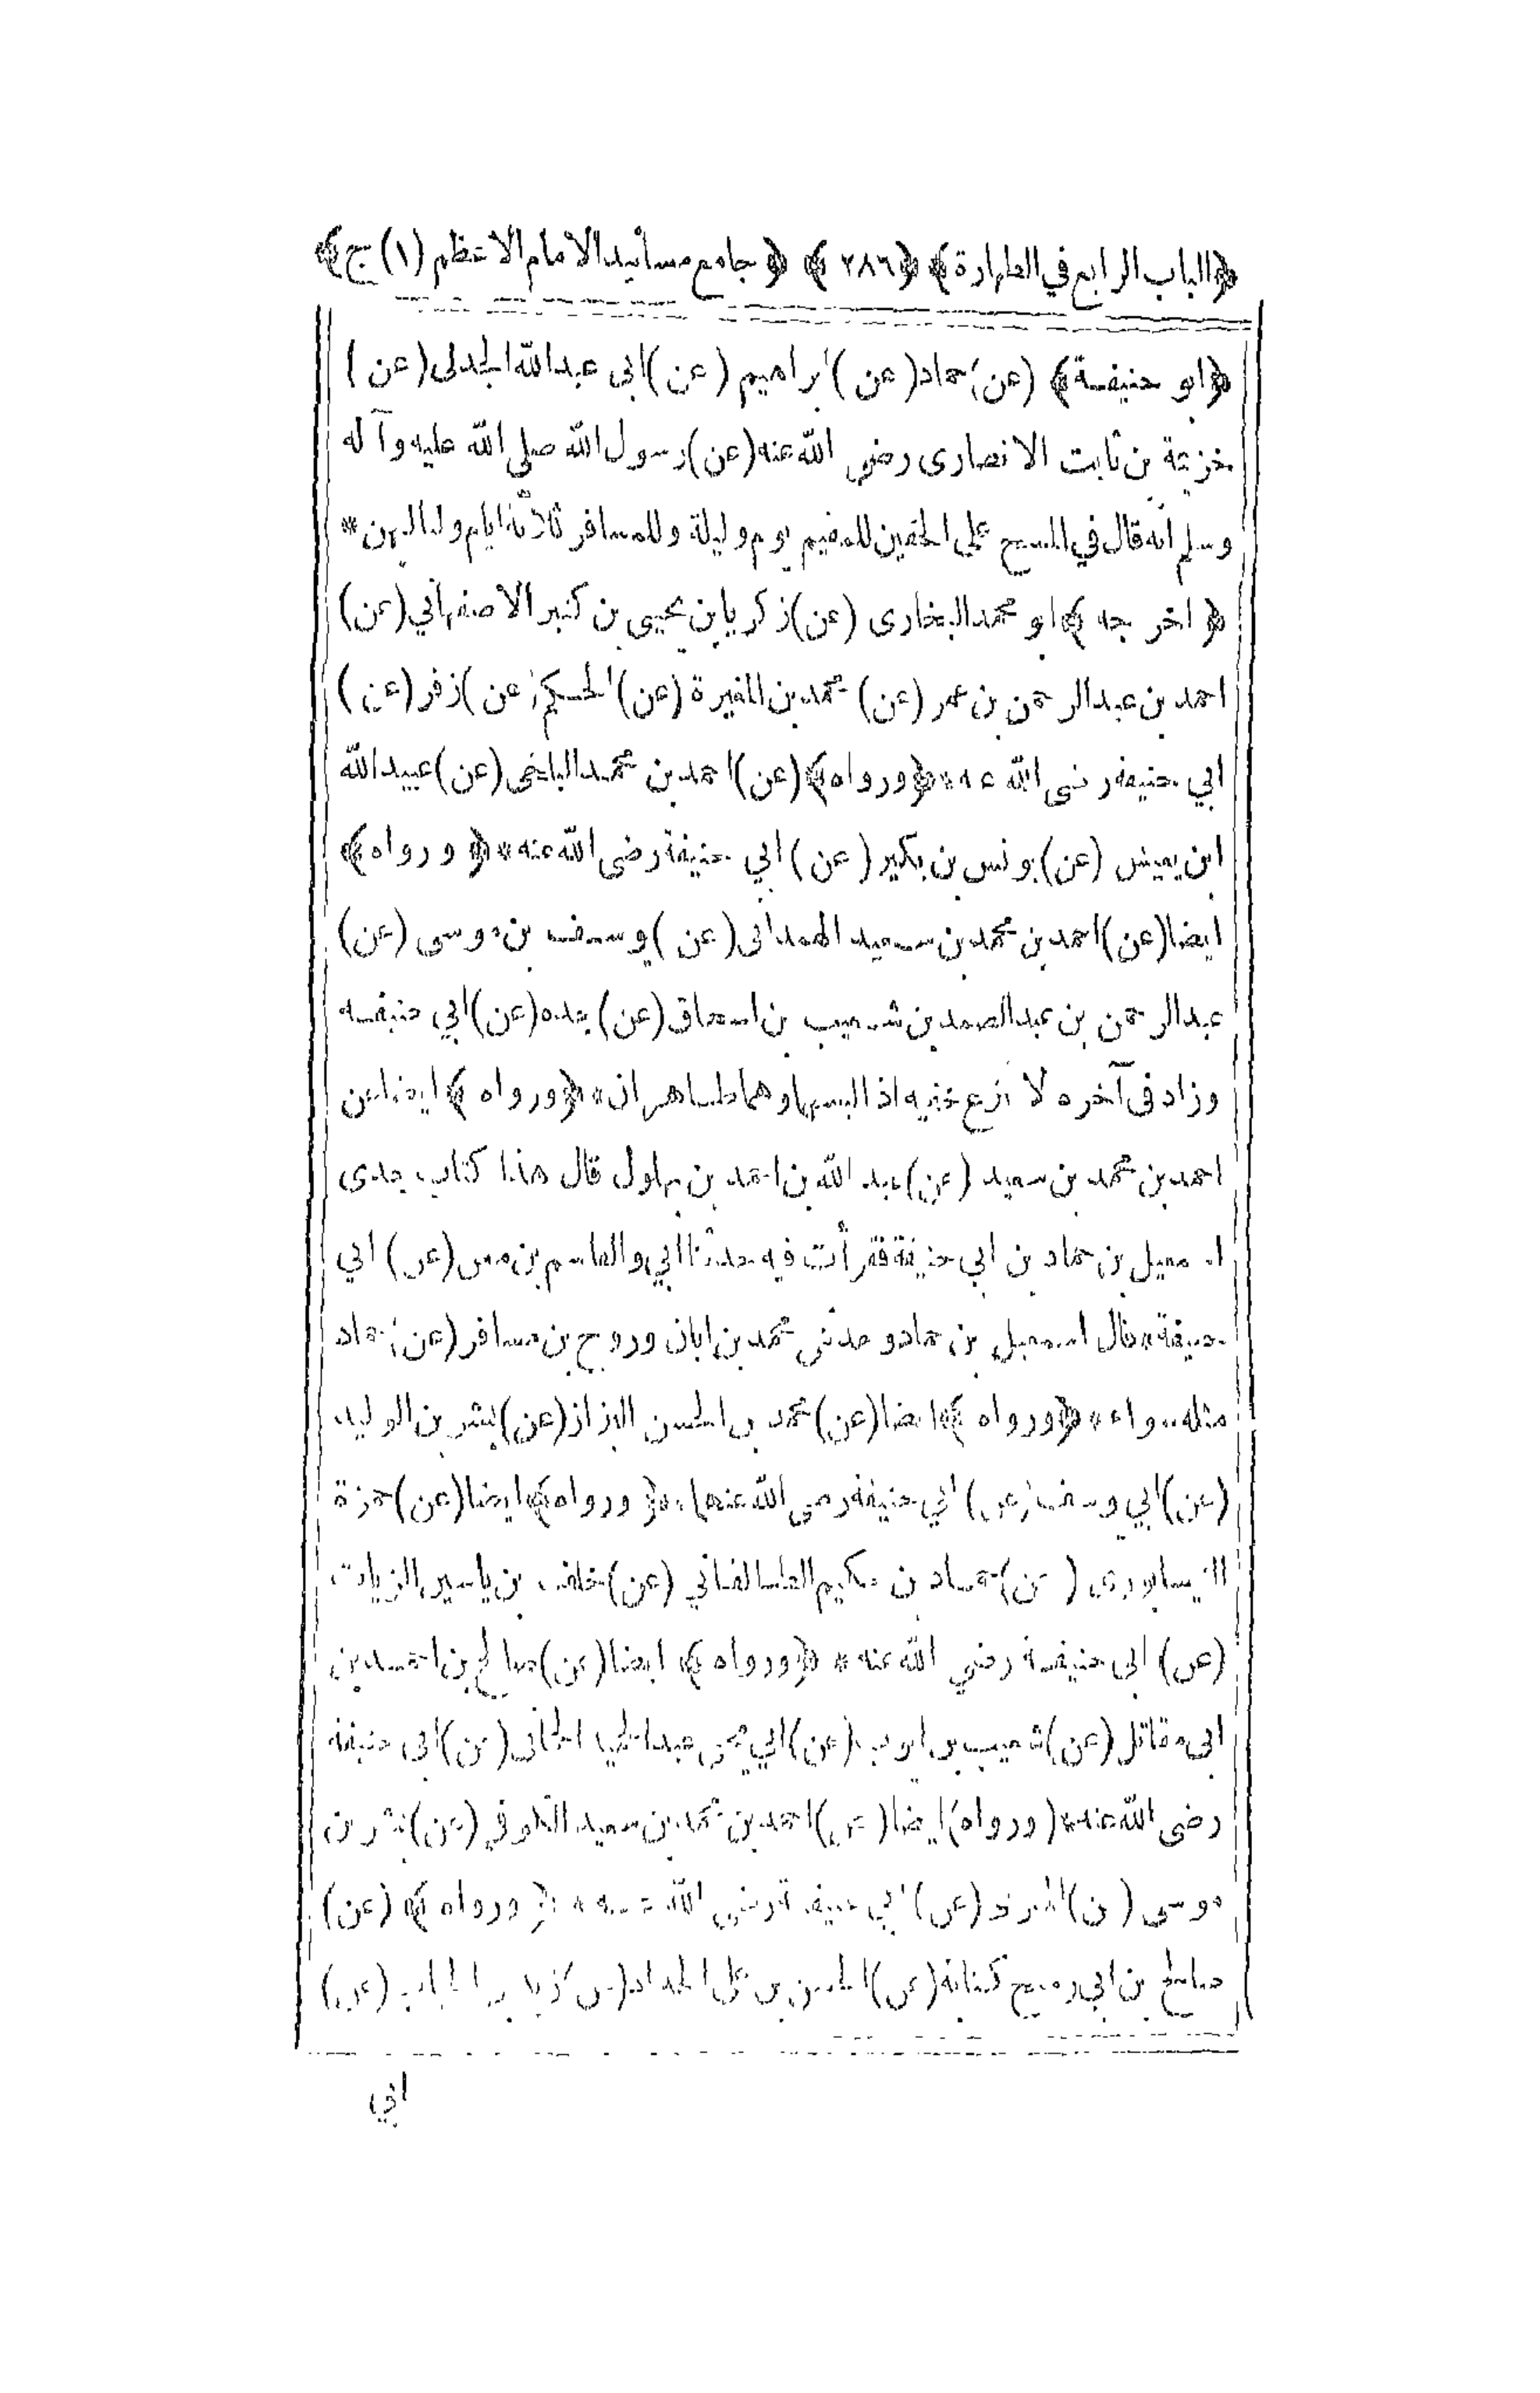 ﴿الباب الرابع في الطهارة﴾ ﴿٢٨٦﴾ ﴿جامع مسانيد الامام الاعظم (١) ج﴾
﴿ابو حنيفة﴾ (عن) حماد (عن) ابراهيم (عن) ابى عبدالله الجدلى (عن)
خزيمة بن ثابت الانصارى رضي الله عنه (عن) رسول الله صلى الله عليه وآله
وسلم انه قال في المسح على الخفين للمقيم يوم وليلة وللمسافر ثلاثة ايام ولياليهن *
﴿اخرجه﴾ ابو محمد البخارى (عن) زكريا بن يحيى بن كثير الاصفهاني (عن)
احمد بن عبدالرحمن بن عمر (عن) محمد بن المغيرة (عن) الحكم (عن) زفر (عن)
ابي حنيفة رضى الله عنه * ﴿ورواه﴾ (عن) احمد بن محمد البلخى (عن) عبيدالله
ابن يعيش (عن) يونس بن بكير (عن) ابي حنيفة رضى الله عنه * ﴿ورواه﴾
ايضا (عن) احمد بن محمد بن سعيد الهمدانى (عن) يوسف بن موسى (عن)
عبدالرحمن بن عبدالصمد بن شعيب بن اسحاق (عن) جده (عن) ابي حنيفة
وزاد فى آخره لا ينزع خفيه اذا لبسهما وهما طاهران * ﴿ورواه﴾ ايضا عن
احمد بن محمد بن سعيد (عن) عبد الله بن احمد بن بهلول قال هذا كتاب جدى
اسمعيل بن حماد بن ابى حنيفة فقرأت فيه حدثنا ابي والقاسم بن معن (عن) ابي
حنيفة * قال اسمعيل بن حماد وحدثنى محمد بن ابان وروح بن مسافر (عن) حماد
مثله سواء * ﴿ورواه﴾ ايضا (عن) محمد بن الحسن البزاز (عن) بشر بن الوليد
(عن) ابي يوسف (عن) ابي حنيفة رضى الله عنهما * ﴿ورواه﴾ ايضا (عن) حمزة
النيسابورى (عن) حماد بن حكيم الطالقاني (عن) خلف بن ياسين الزيات
(عن) ابى حنيفة رضي الله عنه * ﴿ورواه﴾ ايضا (عن) صالح بن احمد بن
ابى مقاتل (عن) شعيب بن ايوب (عن) ابي يحيى عبدالحميد الحمانى (عن) ابى حنيفة
رضى الله عنه * (ورواه) ايضا (عن) احمد بن محمد بن سعيد الكوفي (عن) بشر بن
موسى (عن) المقرئ (عن) ابي حنيفة رضي الله عنه * ﴿ورواه﴾ (عن)
صالح بن ابي رميح كتابة (عن) الحسن بن على الحداد (عن) زيد بن الحباب (عن)
ابي